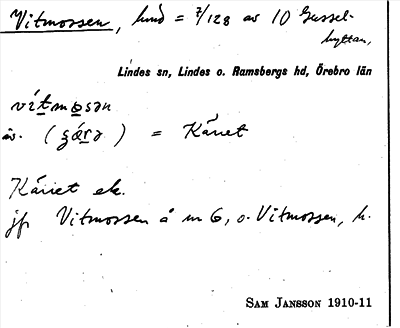 Vitmossen, hmd = 7/128 av 10 Gussel-
hyttan,
Lindes sn, Lindes o. Ramsbergs hd, Örebro län
vítmosən
äv. (kǽrə) = Käret
Käret ek.
jfr Vitmossen å nr 6, o. Vitmossen, h.
SAM JANSSON 1910-11